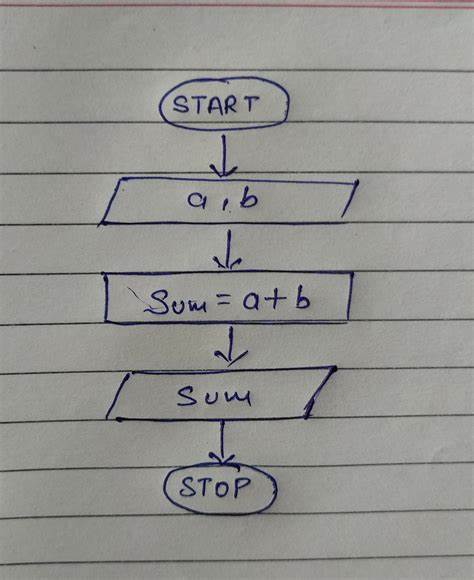 START
a, b
Sum = a+b
Sum
STOP